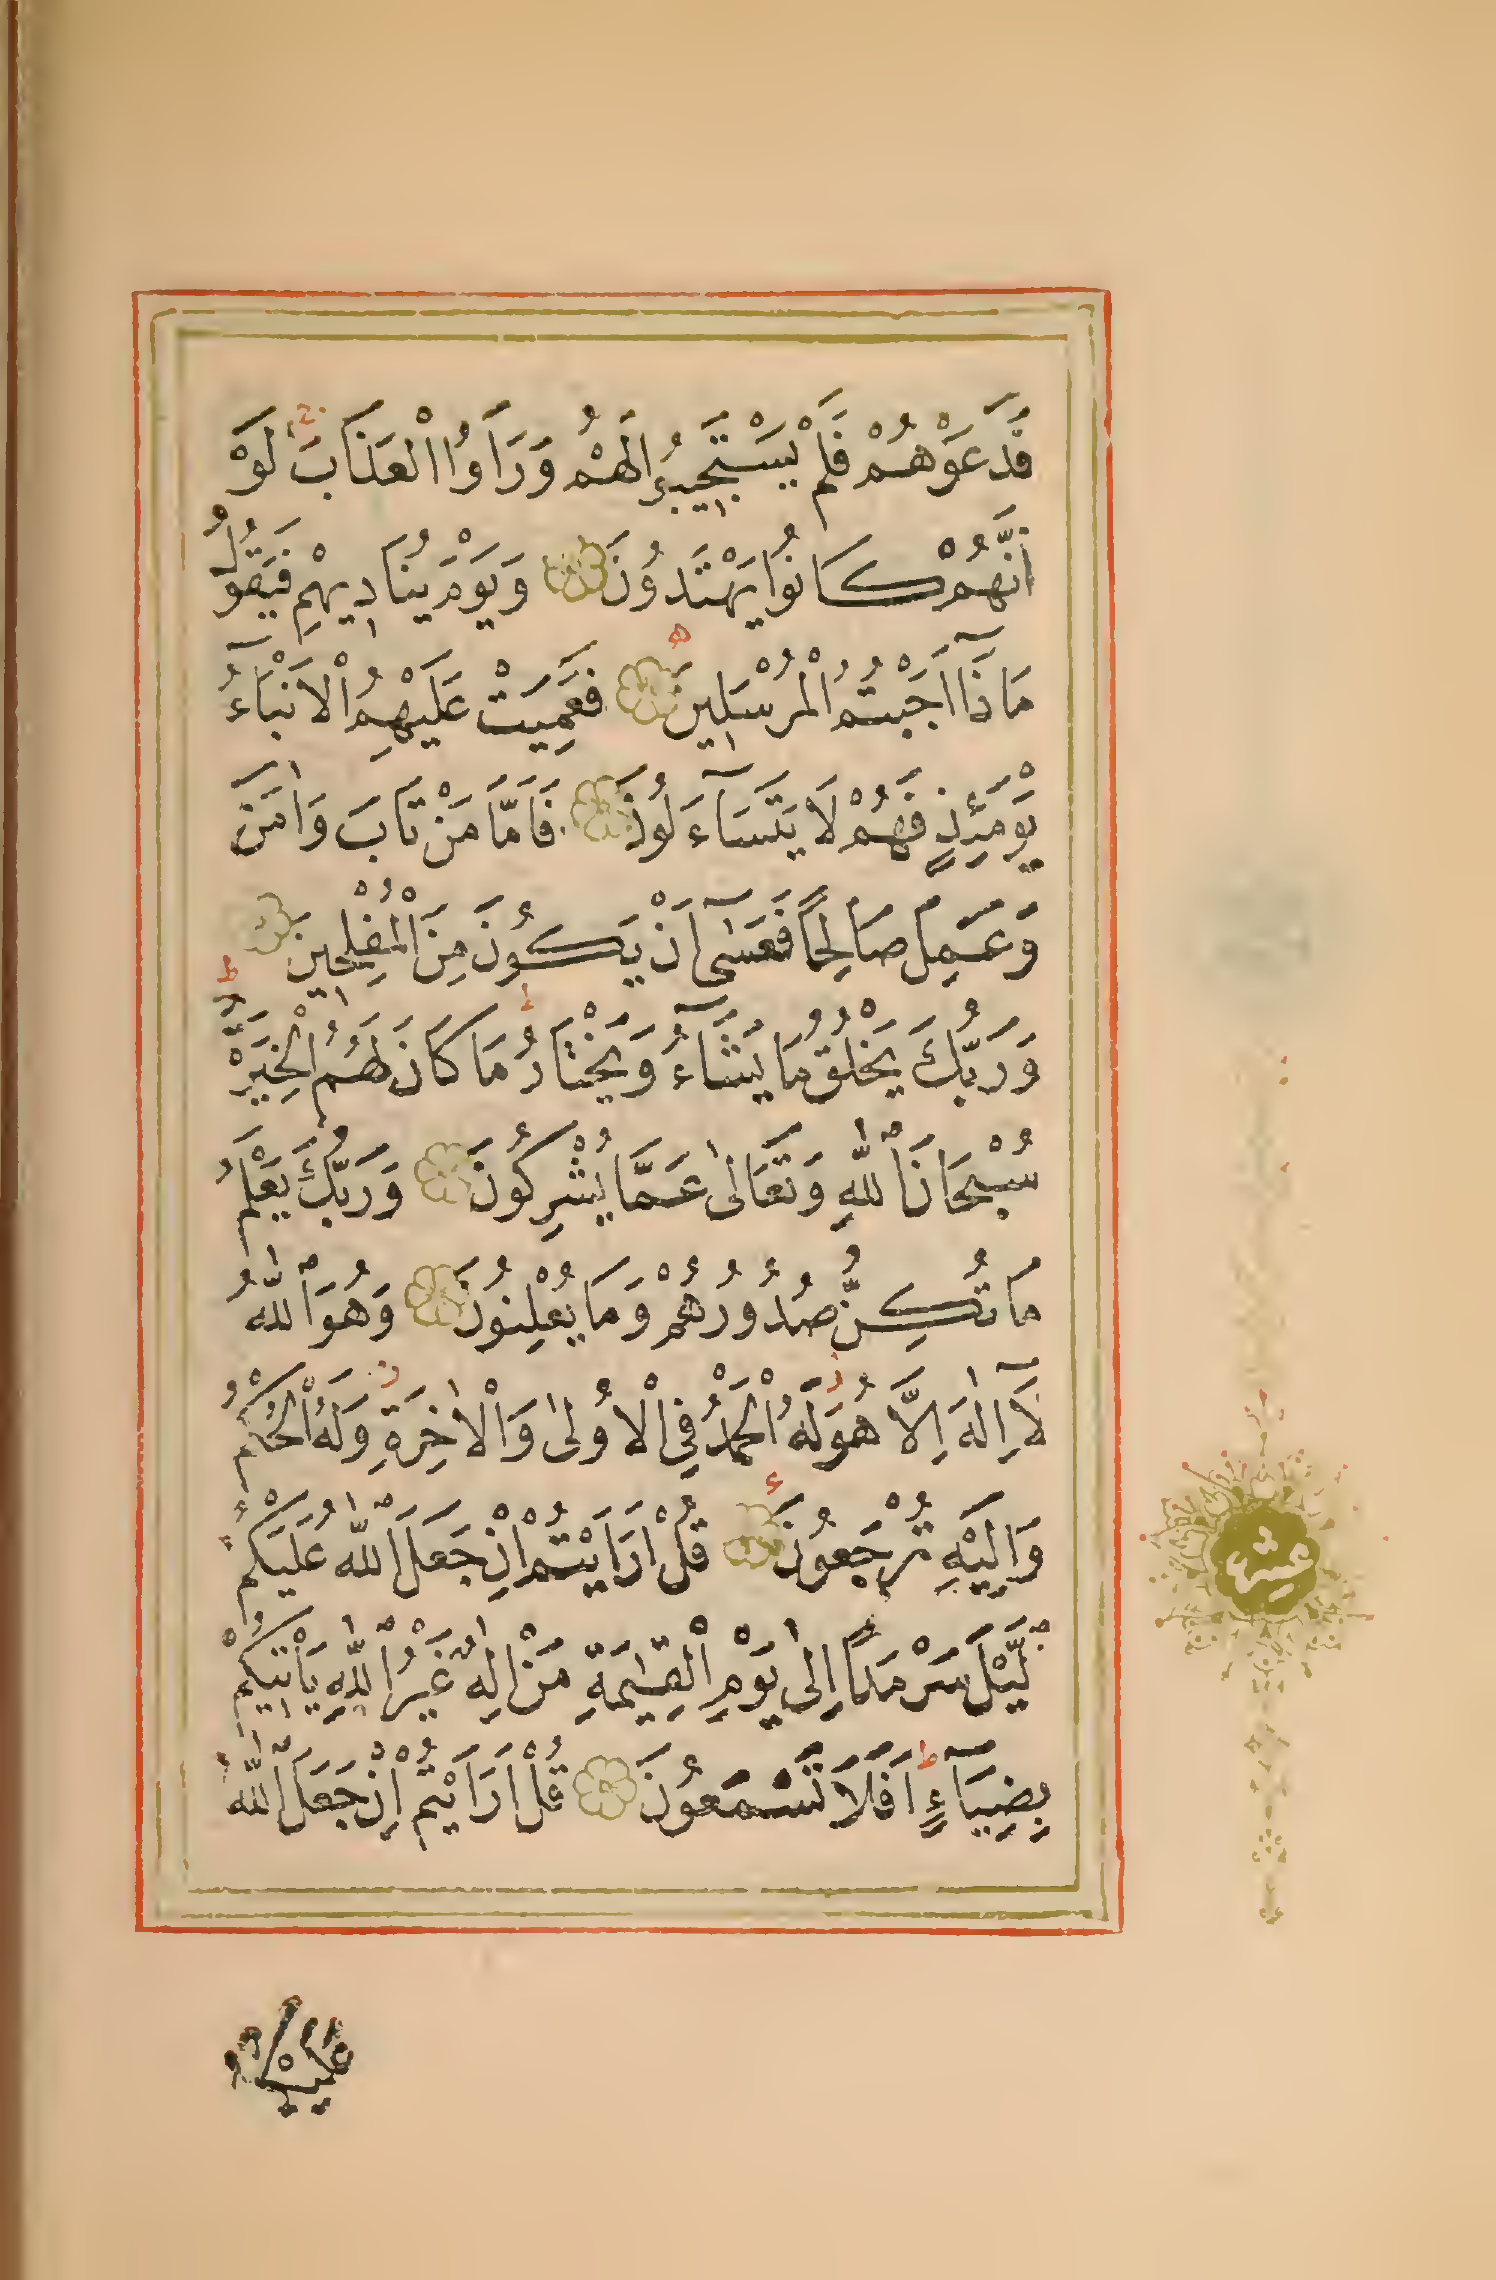 فَدَعَوْهُمْ فَلَمْ يَسْتَجِيبُوا لَهُمْ وَرَاَوُا الْعَذَابَ لَوْ
اَنَّهُمْ كَانُوا يَهْتَدُونَ وَيَوْمَ يُنَادِيهِمْ فَيَقُولُ
مَاذَآ اَجَبْتُمُ الْمُرْسَلِينَ فَعَمِيَتْ عَلَيْهِمُ الْاَنْبَآءُ
يَوْمَئِذٍ فَهُمْ لَا يَتَسَآءَلُونَ فَاَمَّا مَنْ تَابَ وَاٰمَنَ
وَعَمِلَ صَالِحًا فَعَسٰٓى اَنْ يَكُونَ مِنَ الْمُفْلِحِينَ
وَرَبُّكَ يَخْلُقُ مَا يَشَآءُ وَيَخْتَارُ مَا كَانَ لَهُمُ الْخِيَرَةُ
سُبْحَانَ اللّٰهِ وَتَعَالٰى عَمَّا يُشْرِكُونَ وَرَبُّكَ يَعْلَمُ
مَا تُكِنُّ صُدُورُهُمْ وَمَا يُعْلِنُونَ وَهُوَ اللّٰهُ
لَآ اِلٰهَ اِلَّا هُوَ لَهُ الْحَمْدُ فِي الْاُولٰى وَالْاٰخِرَةِ وَلَهُ الْحُكْمُ
وَاِلَيْهِ تُرْجَعُونَ قُلْ اَرَاَيْتُمْ اِنْ جَعَلَ اللّٰهُ عَلَيْكُمُ
الَّيْلَ سَرْمَدًا اِلٰى يَوْمِ الْقِيٰمَةِ مَنْ اِلٰهٌ غَيْرُ اللّٰهِ يَاْتِيكُمْ
بِضِيَآءٍ اَفَلَا تَسْمَعُونَ قُلْ اَرَاَيْتُمْ اِنْ جَعَلَ اللّٰهُ
عَلَيْكُمُ